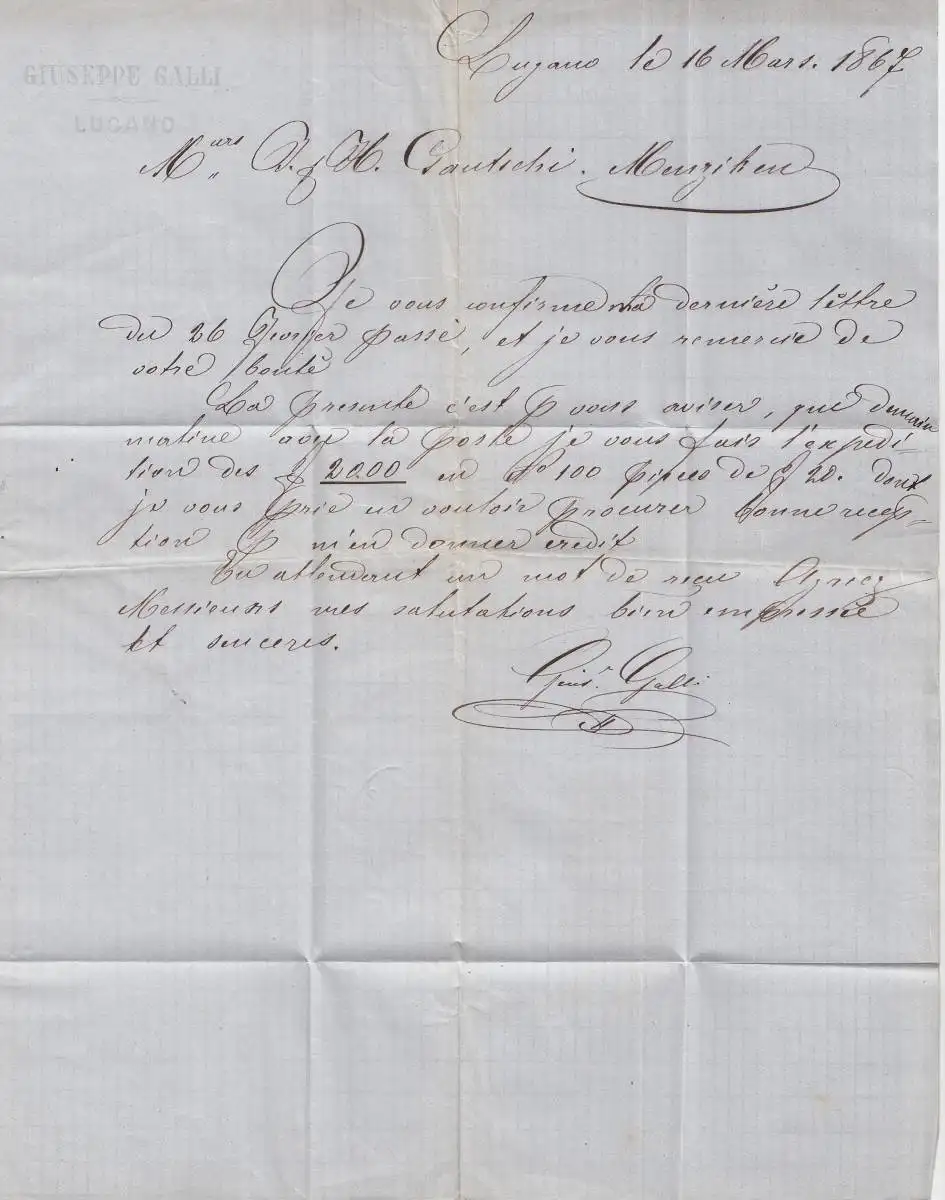 GIUSEPPE GALLI
LUGANO
Lugano le 16 Mars. 1867
M.urs & H. Gautschi. Menziken
Je vous confirme ma dernière lêttre
du 26 passé, et je vous remercie de
votre bonté
La presente c'est p vous aviser, que demain
matine avec la poste je vous fais l'expedi-
tion des f 2000 en No 100 pipes de f 20. dont
je vous prie en vouloir procurer bonne recep-
tion & m'en donner credit
En attendant un mot de reçu Agreez
Messieurs mes salutations bien empressé
et sinceres.
Gius.e Galli